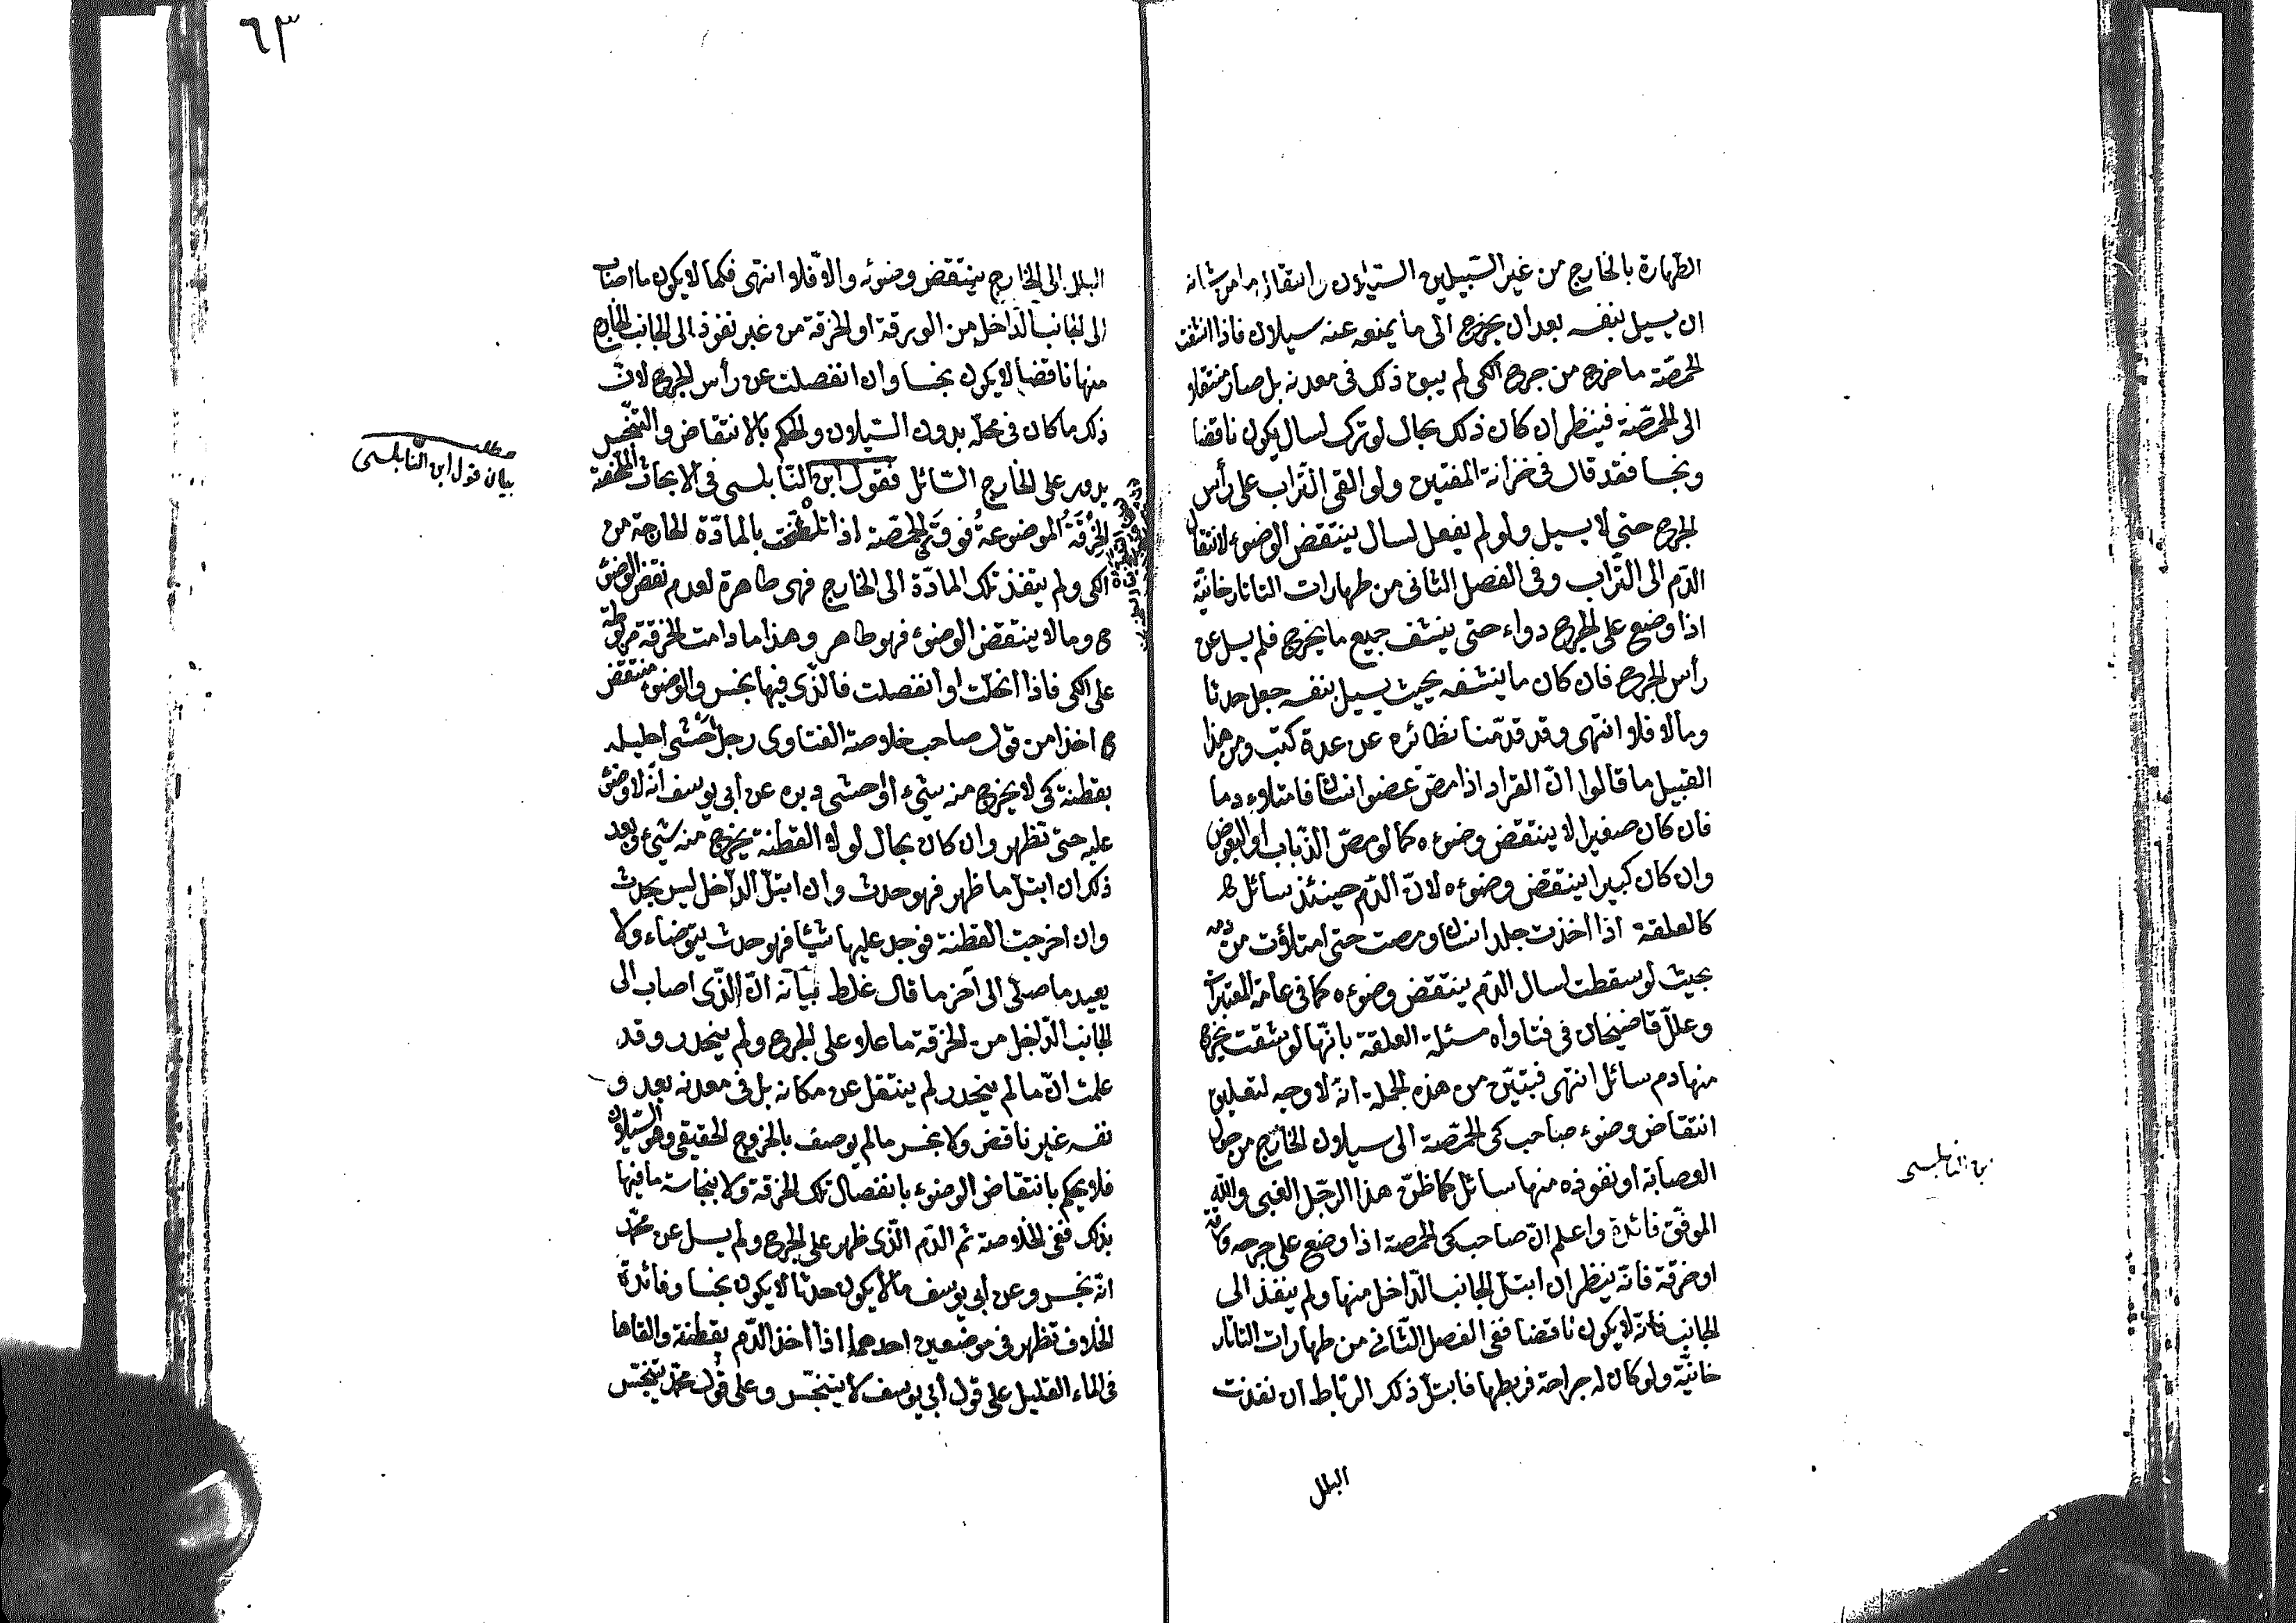 ٦٣
الطهارة بالخارج من غير السبيلين السيلان وانتقال ما من شانه
ان يسيل بنفسه بعد ان يخرج الى ما يمنعه عنه سيلان فاذا انتقت
الحمصة ما خرج من جرح الكى لم يبق ذلك فى معدنه بل صار منتقلا
الى الحمصة فينظر ان كان ذلك بحال لو ترك لسال يكون ناقضا
ونجسا فقد قال فى خزانة المفتين ولو القى التراب على رأس
الجرح حتى لا يسيل ولو لم يفعل لسال ينتقض الوضوء لانتقال
الدم الى التراب وفى الفصل الثانى من طهارات التاتارخانية
اذا وضع على الجرح دواء حتى ينشف جميع ما يخرج فلم يسل عن
رأس الجرح فان كان ما ينشفه بحيث يسيل بنفسه جعل حدثا
ومالا فلا انتهى وقد قدمنا نظائره عن عدة كتب ومن هذا
القبيل ما قالوا ان القراد اذا مص عضو انسان فامتلاء دما
فان كان صغيرا لا ينتقض وضوءه كما لو مص الذباب او البعوض
وان كان كبيرا ينتقض وضوءه لان الدم حينئذ سائل
كالعلقة اذا اخذت جلد انسان ومصت حتى امتلؤت من دمه
بحيث لو سقطت لسال الدم ينتقض وضوءه كما فى عامة المعتبرات
وعلل قاضيخان فى فتاواه مسئلة العلقة بانها لو شقت يخرج
منها دم سائل انتهى فتبين من هذه الجملة انه لا وجه لتعليق
انتقاض وضوء صاحب كى الحمصة الى سيلان الخارج من حول
العصابة او نفوذه منها سائل كما ظن هذا الرجل الغبى والله
الموفق فائدة واعلم ان صاحب كى الحمصة اذا وضع على جرحه ورقة
او خرقة فانه ينظر ان ابتل الجانب الداخل منها ولم ينفذ الى
الجانب فانه لا يكون ناقضا ففى الفصل الثانى من طهارات التاتار
خانية ولو كان له جراحة فربطها فابتل ذلك الرباط ان نفذت
البلل
ابن النابلسى
البلل الى الخارج ينتقض وضوئه والا فلا انتهى فكما لا يكون ما اصاب
الى الجانب الداخل من الورقة او الخرقة من غير نفوذ الى الجانب الخارج
منها ناقضا لا يكون نجسا وان انفصلت عن رأس الجرح لان
ذلك ما كان فى محله بدون السيلان والحكم بالانتقاض والتنجس
يدور على الخارج السائل فقول ابن النابلسى فى الابحاث الملخصة
الخرقة الموضوعة فوق كى الحمصة اذا تلطخت بالمادة الخارجة من
الكى ولم ينفذ تلك المادة الى الخارج فهى طاهرة لعدم نقض الوضوء
وما لا ينتقض الوضوء فهو طاهر وهذا ما دامت الخرقة مربوطة
على الكى فاذا انحلت او انفصلت فالذى فيها نجس والوضوء منتقض
اخذا من قول صاحب خلاصة الفتاوى رجل حشى احليله
بقطنة كى لا يخرج منه شىء او حشى دبره عن ابى يوسف انه لا وضوء
عليه حتى تظهر وان كان بحال لولا القطنة يخرج منه شىء وبعد
ذلك ان ابتل ما ظهر فهو حدث وان ابتل الداخل ليس بحدث
وان اخرجت القطنة فوجد عليها شيئا فهو حدث يتوضاء ولا
يعيد ما صلى الى آخر ما قال غلط بيانه ان الذى اصاب الى
الجانب الداخل من الخرقة ما علا على الجرح ولم ينحدر وقد
علمت ان ما لم ينحدر لم ينتقل عن مكانه بل فى معدنه بعد و
نفسه غير ناقض ولا نجس ما لم يوصف بالخروج الحقيقى وهو السيلان
فلا يحكم بانتقاض الوضوء بانفصال تلك الخرقة ولا بنجاسة ما فيها
بذلك ففى الخلاصة ثم الدم الذى ظهر على الجرح ولم يسل عن محمد
انه نجس وعن ابى يوسف ما لا يكون حدثا لا يكون نجسا وفائدة
الخلاف تظهر فى موضعين احدهما اذا اخذ الدم بقطنة والقاها
فى الماء القليل على قول ابى يوسف لا يتنجس وعلى قول محمد يتنجس
مطلب
بيان قول ابن النابلسى